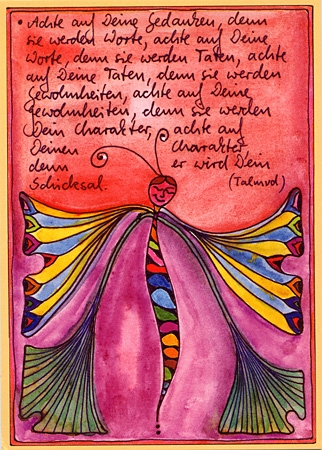 • Achte auf Deine Gedanken, denn
sie werden Worte, achte auf Deine
Worte, denn sie werden Taten, achte
auf Deine Taten, denn sie werden
Gewohnheiten, achte auf Deine
Gewohnheiten, denn sie werden
Dein Charakter, achte auf
Deinen Charakter
denn er wird Dein
Schicksal. (Talmud)